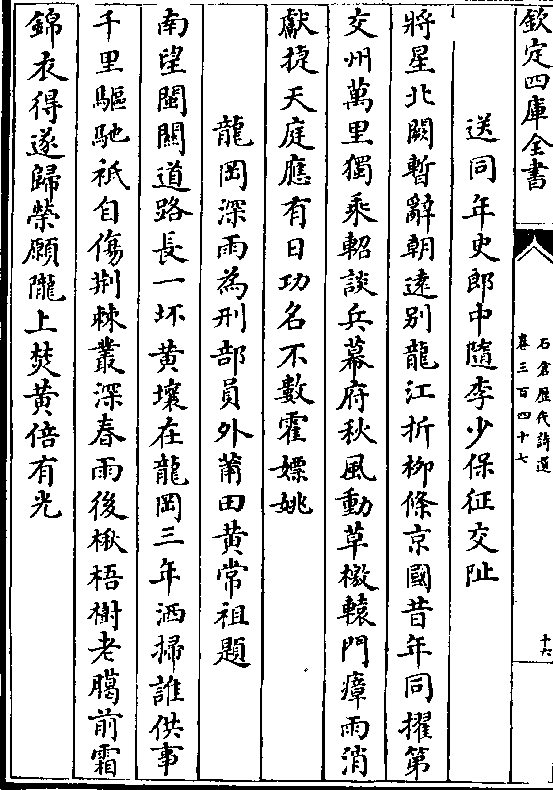 欽定四庫全書
石倉歷代詩選
卷三百四十七
十六
送同年史郎中隨李少保征交阯
將星北闕暫辭朝逺别龍江折栁條京國昔年同擢第
交州萬里獨乘軺談兵幕府秋風動草檄轅門瘴雨消
獻捷天庭應有日功名不數霍嫖姚
龍岡深雨為刑部員外莆田黄常祖題
南望閩關道路長一坏黄壤在龍岡三年洒掃誰供事
千里驅馳祇自傷荆棘叢深春雨後楸梧樹老臈前霜
錦衣得遂歸榮願隴上焚黄倍有光